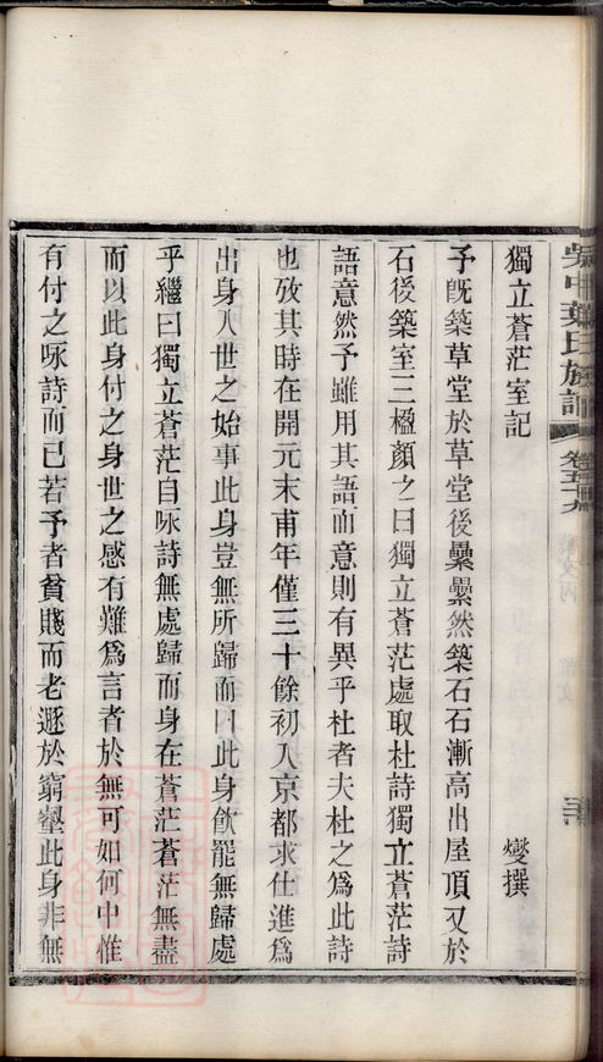 吳中葉氏族譜
卷五十九
獨立蒼茫室記
燮撰
予既築草堂於草堂後纍纍然築石石漸高出屋頂又於
石後築室三楹顏之曰獨立蒼茫處取杜詩獨立蒼茫詩
語意然予雖用其語而意則有異乎杜者夫杜之爲此詩
也攷其時在開元末甫年僅三十餘初入京都求仕進爲
出身人世之始事此身豈無所歸而曰此身飲罷無歸處
乎繼曰獨立蒼茫自咏詩無處歸而身在蒼茫蒼茫無盡
而以此身付之身世之感有難爲言者於無可如何中惟
有付之咏詩而已若予者貧賤而老遯於窮壑此身非無